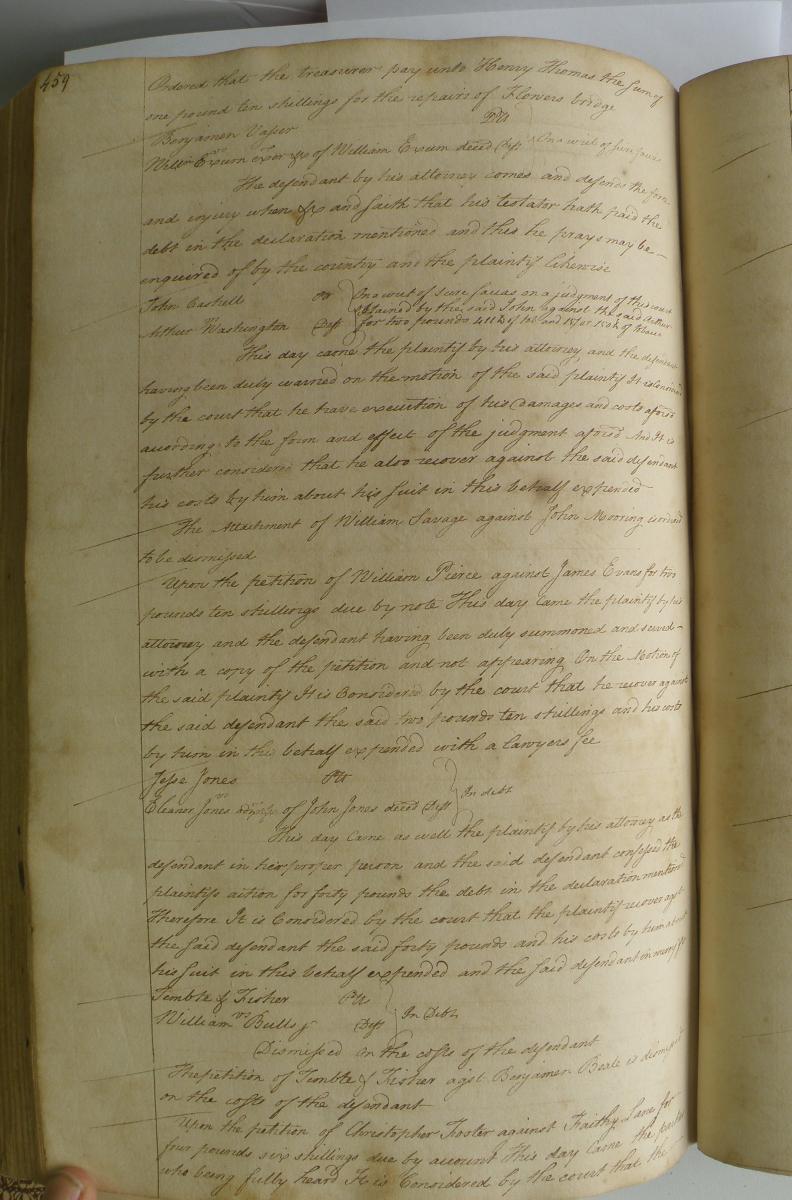 459
Ordered that the treasurer pay unto Henry Thomas the Sum of
one pound ten shillings for the repairs of Flowers bridge
Benjamen Vasser Plt
vs
Willm Exum Exor &c of William Exum deced Deft On a writ of
The defendant by his attorney comes and defends the force
and injury when &c and saith that his testator hath paid the
debt in the declaration mentioned and this he prays may be
enquired of by the country and the plaintif likewise
John On a writ of on a judgment of this court
obtained by the said John against the said Arthur
Arthur Washington Deft for two pounds
This day came the plaintif by his attorney and the defendant
having been duly warned on the motion of the said plaintif It is Considered
by the court that he have execution of his Damages and costs aforsd
according to the form and effect of the judgment aforsd And It is
further considered that he also recover against the said defendant
his costs by him about his suit in this behalf expended
The Attachment of William Savage against John Mooring is ordered
to be dismissed
Upon the petition of William Pierce against James Evans for two
pounds ten shillings due by note This day Came the plaintif by his
attorney and the defendant having been duly summoned and served
with a copy of the petition and not appearing On the Motion of
the said plaintif It is Considered by the court that he recover against
the said defendant the said two pounds ten shillings and his costs
by him in this behalf expended with a lawyers fee
Jesse Jones Plt
vs In debt
Eleanor Jones of John Jones deced Deft
This day Came as well the plaintif by his attorney as the
defendant in her proper person and the said defendant confessed the
plaintifs action for forty pounds the debt in the declaration mentioned
Therefore It is Considered by the court that the plaintif recover agst
the said defendant the said forty pounds and his costs by him about
his suit in this behalf expended and the said defendant in mercy &c
Timble & Fisher Plt
vs In Debt
William Bulls Deft
Dismissed on the costs of the defendant
The petition of Timble & Fisher agst Benjamen Beale is dismissed
on the costs of the defendant
Upon the petition of Christopher Foster against Faithy Lane for
four pounds six shillings due by account this day Came the parties
who being fully heard It is Considered by the court that the